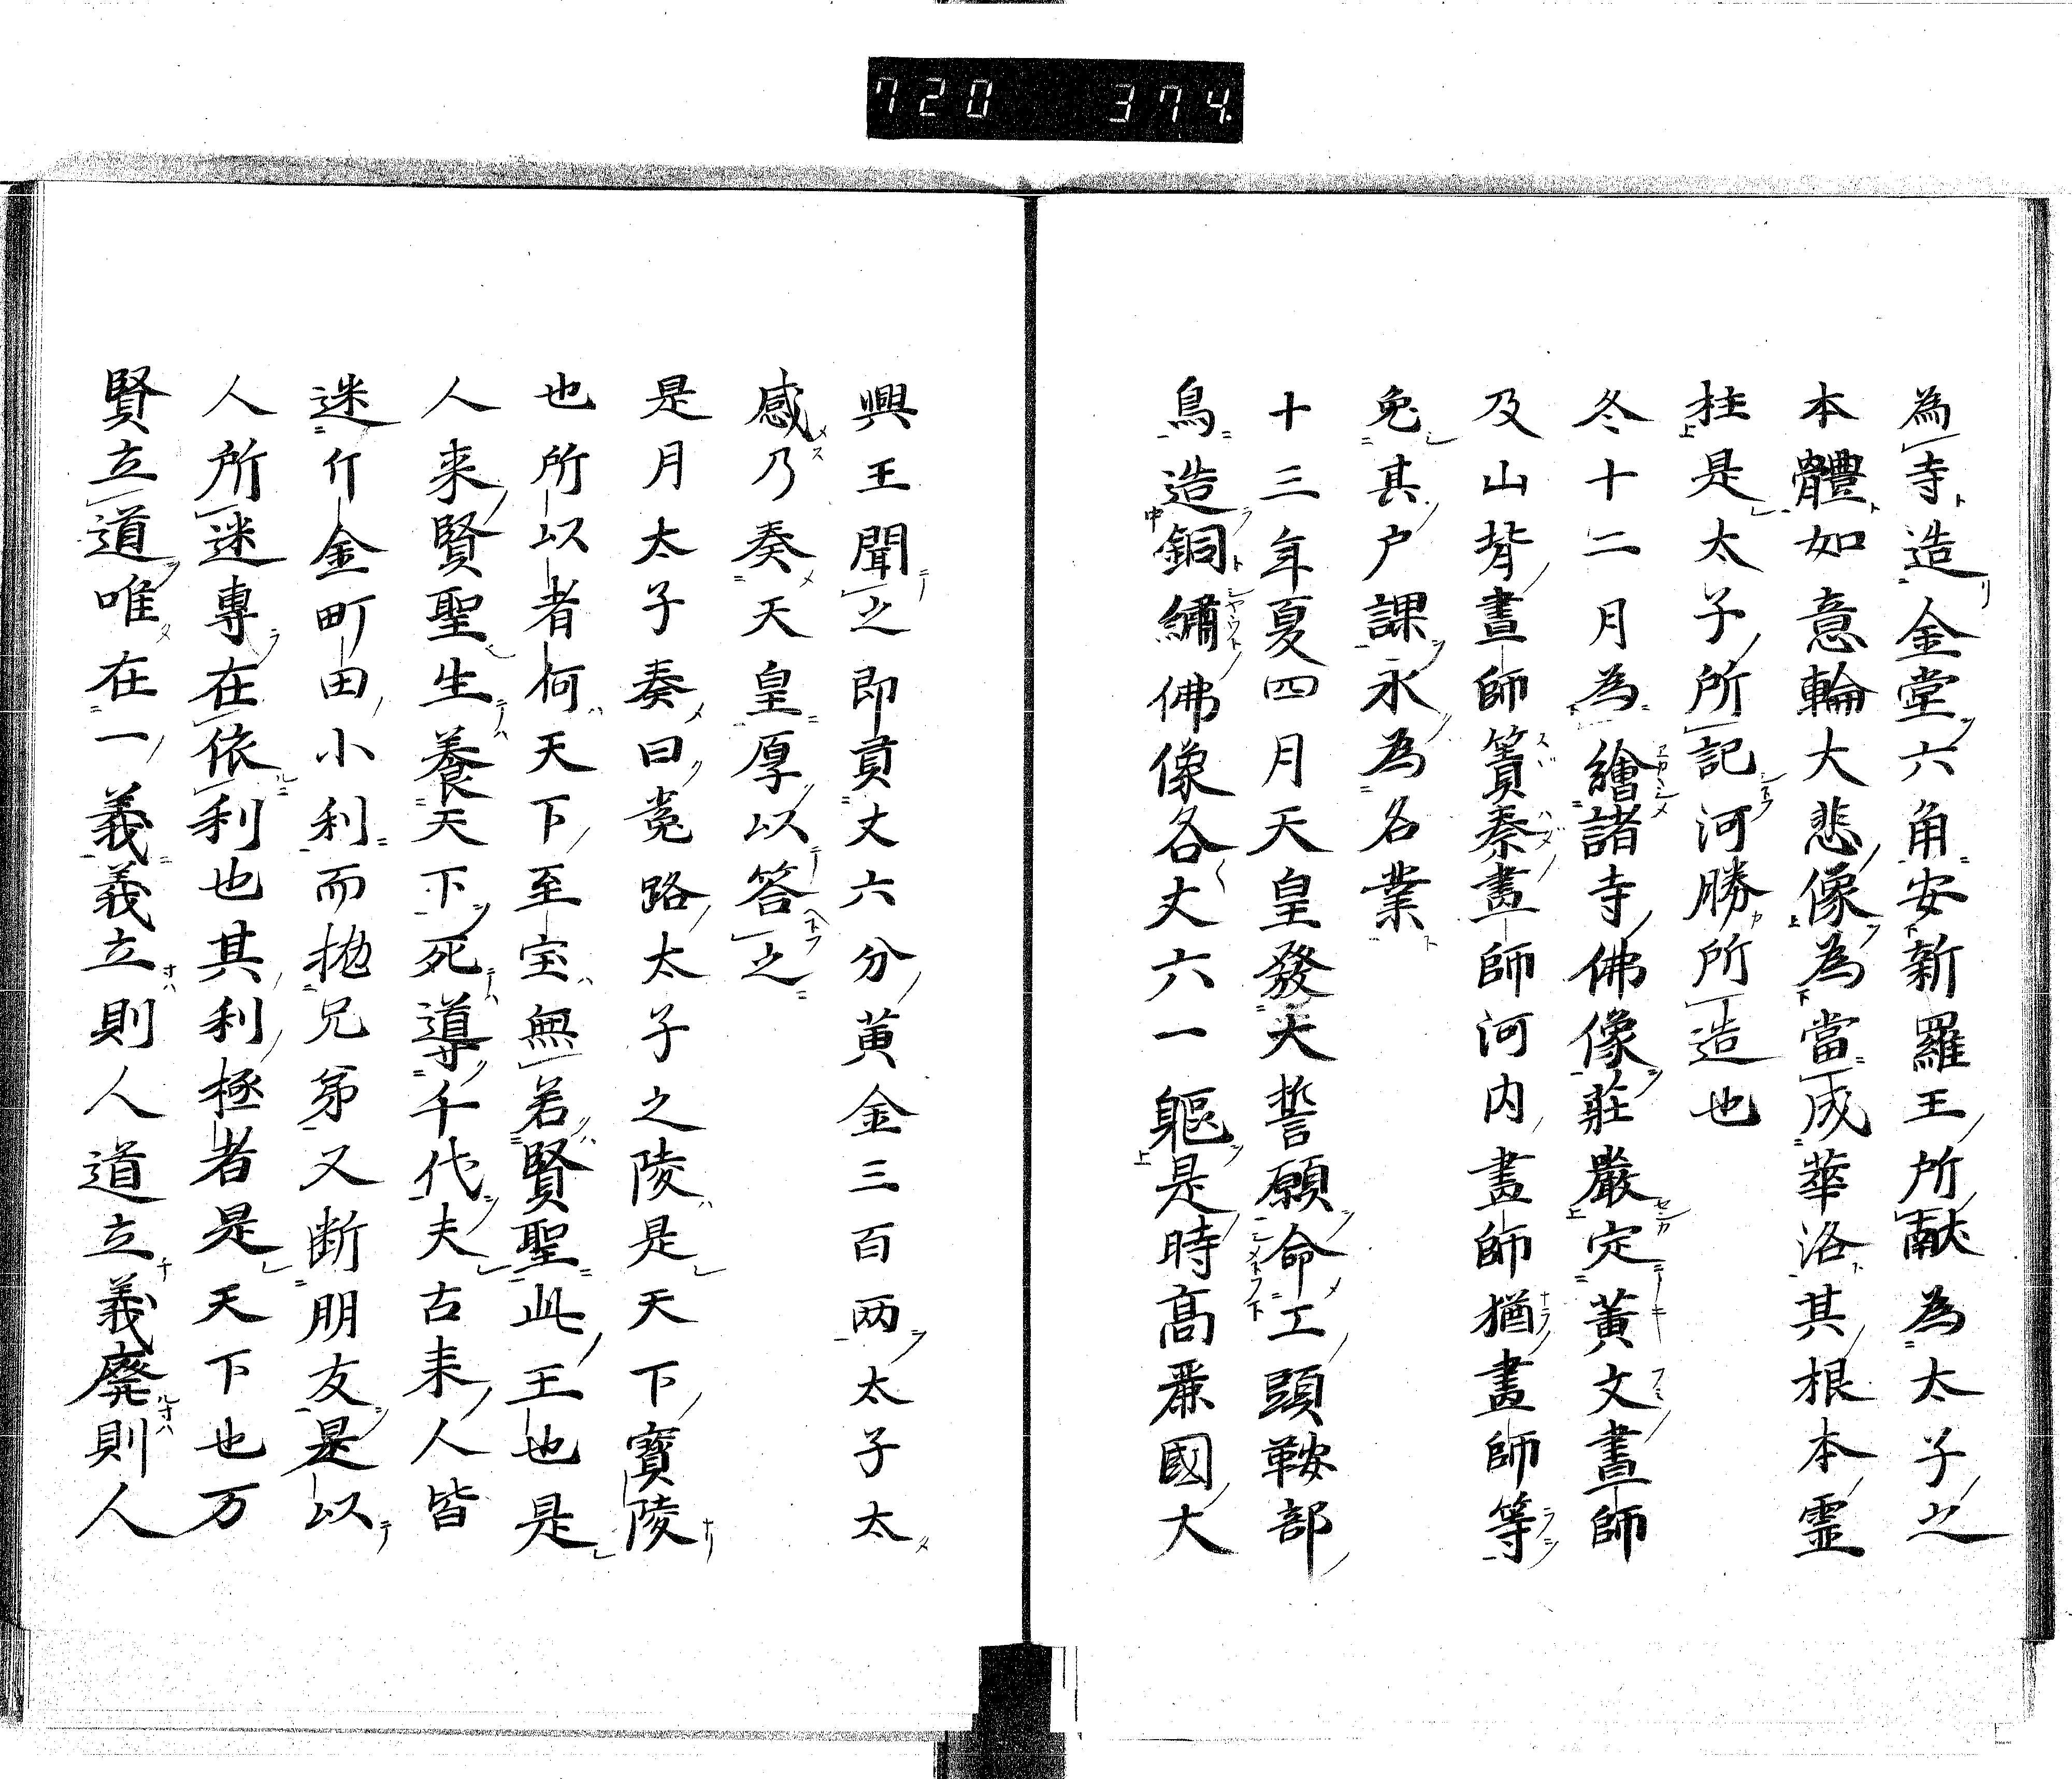 720 374
為寺造金堂六角安新羅王所献為太子之
本體如意輪大悲像為當成華洛其根本霊
柱是太子所記河勝所造也
冬十二月為繪諸寺佛像莊嚴定黃文畫師
及山背畫師簀秦畫師河内畫師楢畫師等
免其戸課永為名業
十三年夏四月天皇發大誓願命工頭鞍部
鳥造銅繡佛像各丈六一軀是時髙麗國大
興王聞之即貢丈六分黄金三百两太子太
感乃奏天皇厚以答之
是月太子奏曰菟路太子之陵是天下寶陵
也所以者何天下至宝無若賢聖此王也是
人来賢聖生養天下死導千代夫古来人皆
迷介金町田小利而抛兄弟又断朋友是以
人所迷專在依利也其利極者是天下也万
賢立道唯在一義義立則人道立義廢則人